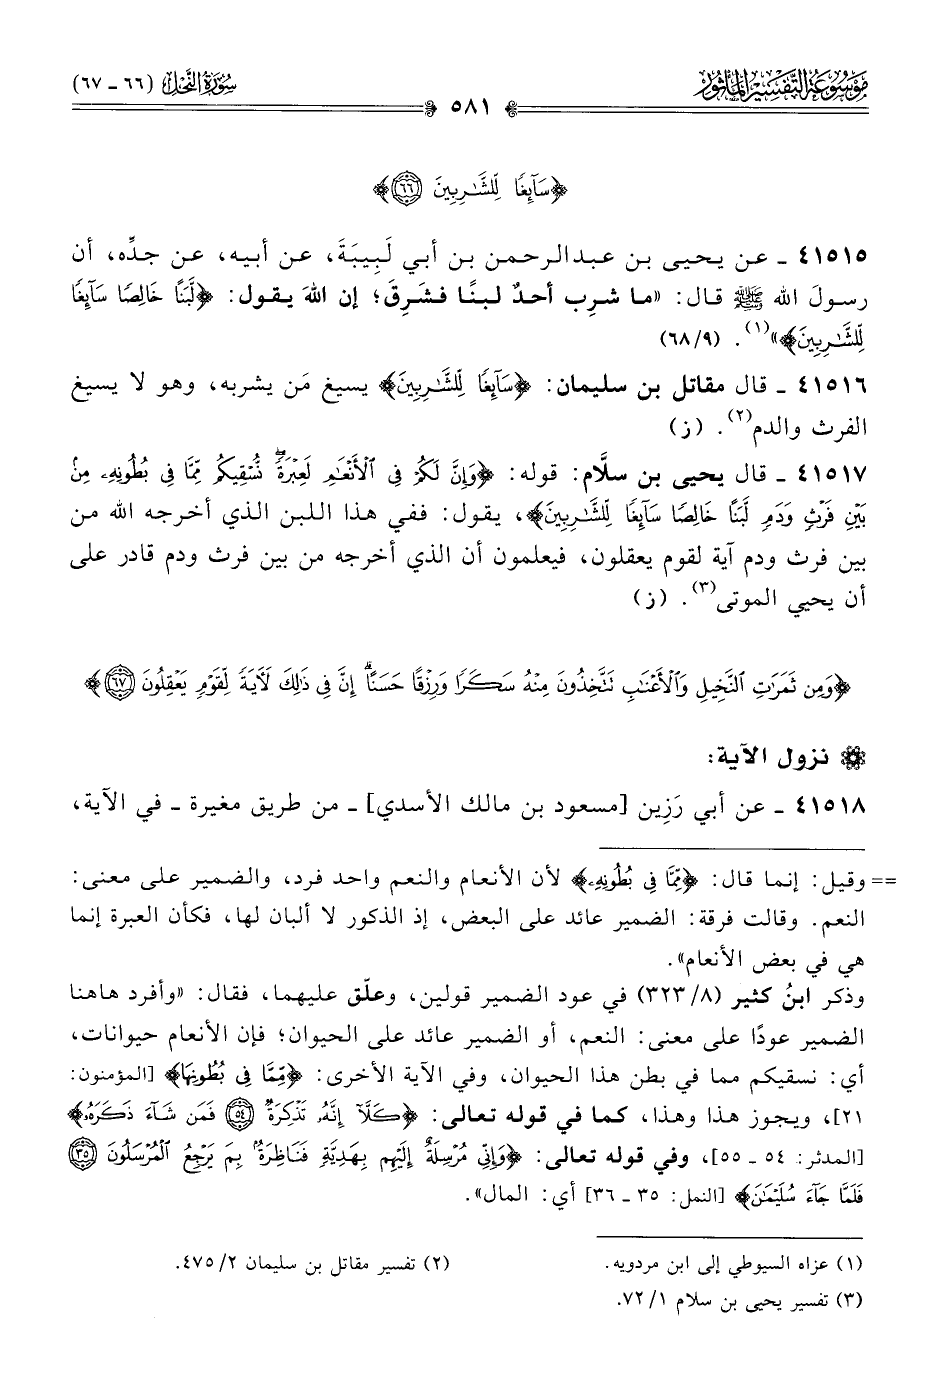 موسوعة التفسير المأثور
٥٨١
سورة النحل (٦٦ - ٦٧)
﴿سَآئِغًا لِّلشَّٰرِبِينَ ٦٦﴾
٤١٥١٥ - عن يحيى بن عبدالرحمن بن أبي لَبِيبَةَ، عن أبيه، عن جدِّه، أن
رسولَ الله ﷺ قال: «ما شرِب أحدٌ لبنًا فشَرِقَ؛ إن اللهَ يقول: ﴿لَّبَنًا خَالِصًا سَآئِغًا
لِّلشَّٰرِبِينَ﴾»(١). (٦٨/٩)
٤١٥١٦ - قال مقاتل بن سليمان: ﴿سَآئِغًا لِّلشَّٰرِبِينَ﴾ يسيغ مَن يشربه، وهو لا يسيغ
الفرث والدم(٢). (ز)
٤١٥١٧ - قال يحيى بن سلَّام: قوله: ﴿وَإِنَّ لَكُمْ فِي ٱلْأَنْعَٰمِ لَعِبْرَةًۖ نُّسْقِيكُم مِّمَّا فِي بُطُونِهِۦ مِنۢ
بَيْنِ فَرْثٍ وَدَمٍ لَّبَنًا خَالِصًا سَآئِغًا لِّلشَّٰرِبِينَ﴾، يقول: ففي هذا اللبن الذي أخرجه الله من
بين فرث ودم آية لقوم يعقلون، فيعلمون أن الذي أخرجه من بين فرث ودم قادر على
أن يحيي الموتى(٣). (ز)
﴿وَمِن ثَمَرَٰتِ ٱلنَّخِيلِ وَٱلْأَعْنَٰبِ تَتَّخِذُونَ مِنْهُ سَكَرًا وَرِزْقًا حَسَنًاۗ إِنَّ فِي ذَٰلِكَ لَأَيَةً لِّقَوْمٍ يَعْقِلُونَ ٦٧﴾
نزول الآية:
٤١٥١٨ - عن أبي رَزِين [مسعود بن مالك الأسدي] - من طريق مغيرة - في الآية،
== وقيل: إنما قال: ﴿مِّمَّا فِي بُطُونِهِۦ﴾ لأن الأنعام والنعم واحد فرد، والضمير على معنى:
النعم. وقالت فرقة: الضمير عائد على البعض، إذ الذكور لا ألبان لها، فكأن العبرة إنما
هي في بعض الأنعام».
وذكر ابنُ كثير (٣٢٣/٨) في عود الضمير قولين، وعلّق عليهما، فقال: «وأفرد هاهنا
الضمير عودًا على معنى: النعم، أو الضمير عائد على الحيوان؛ فإن الأنعام حيوانات،
أي: نسقيكم مما في بطن هذا الحيوان، وفي الآية الأخرى: ﴿مِّمَّا فِي بُطُونِهَا﴾ [المؤمنون:
٢١]، ويجوز هذا وهذا، كما في قوله تعالى: ﴿كَلَّآ إِنَّهُۥ تَذْكِرَةٌ ٥٤ فَمَن شَآءَ ذَكَرَهُۥ﴾
[المدثر: ٥٤ - ٥٥]، وفي قوله تعالى: ﴿وَإِنِّي مُرْسِلَةٌ إِلَيْهِم بِهَدِيَّةٍ فَنَاظِرَةٌۢ بِمَ يَرْجِعُ ٱلْمُرْسَلُونَ ٣٥
فَلَمَّا جَآءَ سُلَيْمَٰنَ﴾ [النمل: ٣٥ - ٣٦] أي: المال».
(١) عزاه السيوطي إلى ابن مردويه.
(٢) تفسير مقاتل بن سليمان ٤٧٥/٢.
(٣) تفسير يحيى بن سلام ٧٢/١.